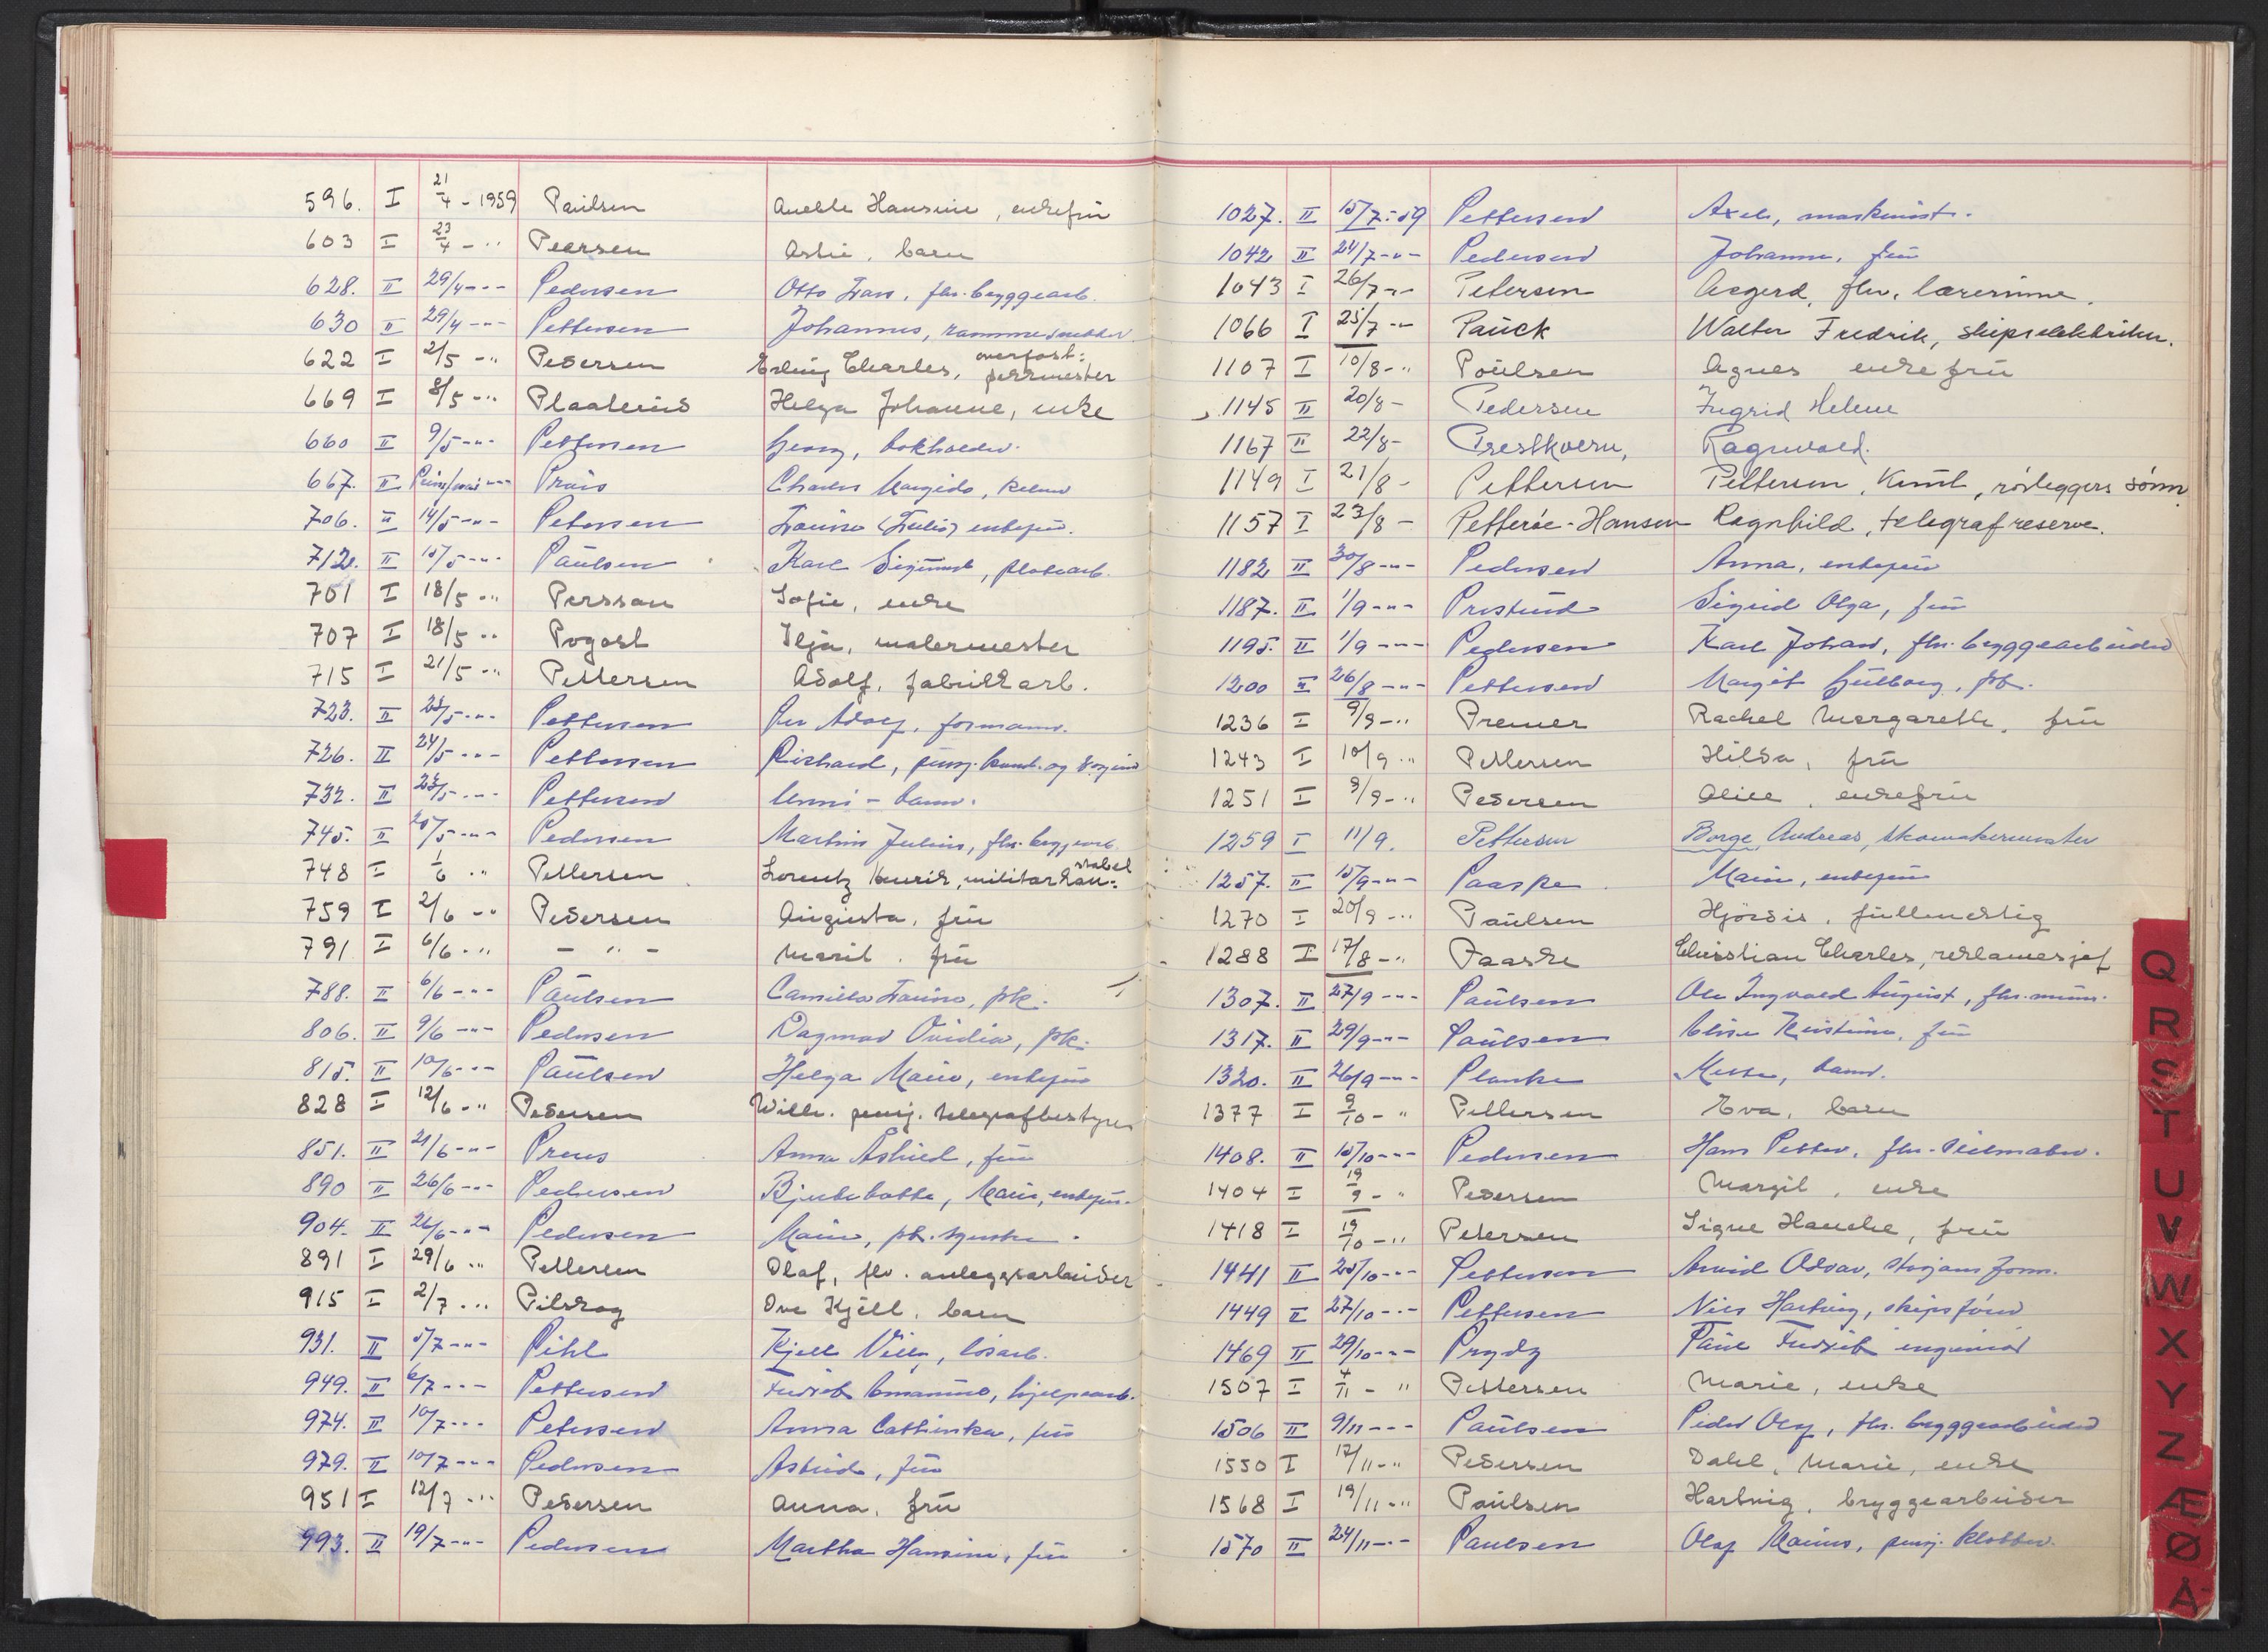 596. I 21/4 - 1959 Paulsen Anette Hansine, enkefrü
603 I 23/4 - " Peersen barn
628. II 29/4 - " - Pedersen Otto Frans, fhv. bryggearb.
630 II 29/4 - " - Pettersen Johannes, rammesnekker
622 I 2/5 - " Pedersen Erling Charles, overpost: permester
669 I 8/5 - " Plaatenius Helga Johanne, enke
660 II 9/5 - " - Pettersen Georg, bokholder.
667. II - " - Prüis Charles kelner
706. II 14/5 - " - Petersen enkefrü.
712. II 15/5 - " - Paülsen Karl Sigmund, platearb.
701 I 18/5 - " Persson Sofie, enke
707 I 18/5 - " Pogost Ilja, malermester
715 I 21/5 - " Pettersen Adolf, fabrikkarb.
723. II 23/5 - " - Pettersen Per Adolf, formann.
726. II 24/5 - " - Pettersen Richard, pensj.
732. II 23/5 - " - Pettersen Unni - barn.
745. II 25/5 - " - Pedersen Martin Julius, fhv. bryggearb.
748 I 1/6 " Pettersen Lorentz Henrik, militær
759 I 2/6 - " Pedersen Aügüsta, früe
791 I 6/6 - " - " - Marit, früe
788. II 6/6 - " - Paülsen Camilla pk.
806. II 9/6 - " - Pedersen Dagmar Ovidia, pk.
815. II 10/6 - " - Paülsen Helga Marie, enkefrü
828 I 12/6 - " Pedersen Wilh. pensj. telegrafbestyrer
851. II 21/6 - " - Preus Anna Astrid, frü
890 II 26/6 - " - Pedersen Bjerkebakke, Marie, enkefrü.
904. II 26/6 - " - Pedersen Marie, pk.
891 I 29/6 " Pettersen Olaf, fhv. anleggsarbeider
915 I 2/7 - " Pilskog Ove Kjell, barn
931. II 5/7 - " - Pihl Kjell Villy, løsarb.
949. II 6/7 - " - Pettersen hjelpearb.
974. II 10/7 - " - Petersen Anna Cathinka, frü
979. II 10/7 - " - Pedersen Astrid, frü
951 I 12/7 - " Pedersen Anna, frü
993. II 19/7 - " - Pedersen Martha Hansine, frü
1027. II 15/7 - 59 Pettersen Axel, maskinist.
1042 II 24/7 - " - Pedersen Johanne, frü
1043 I 26/7 - " Petersen Asgerd, fhv. lærerinne.
1066 I 25/7 - " Paück Walter Fredrik, skipselektriker.
1107 I 10/8 - " Poülsen Agnes enkefrü
1145 II 20/8 - Pedersen Ingrid Helene
1167 II 22/8 - Prestkvern, Ragnvald.
1149 I 21/8 - Pettersen Pettersen, Knüt, rörleggers sönn
1157 I 23/8 - Petterøe-Hansen Ragnhild, telegrafreserve.
1182 II 30/8 - " - Pedersen Anna, enkefrü
1187. II 1/9 - " - Prestrud Sigrid Olga, frü
1195. II 1/9 - " - Pedersen Karl Johan, fhv. bryggearbeider
1200 II 26/8 - " - Pettersen Margit Gülborg, pk.
1236 I 9/9 - " Premer Rachel Margarethe, frü
1243 I 10/9 " Pettersen Hilda, frü
1251 I 9/9 - " Pedersen Alice, enkefrü
1259 I 11/9. Pettersen Borge, Andreas, skomakermester
1257. II 15/9 - " - Paaske Marie, enkefrü
1270 I 20/9 - " Paülsen Hjördis, füllmektig
1288 I 17/8 - " Paaske Christian Charles, reklamesjef
1307. II 27/9 - " - Paülsen Ole Ingvald Aügüst, fhv. murer.
1317. II 29/9 - " - Paülsen Elise Kristine, frü
1320. II 26/9 - " - Planke Mette, barn.
1377 I 9/10 - " Pettersen Eva, barn
1408. II 15/10 - " - Pedersen Hans Petter, fhv. seilmaker.
1404 I 19/9 - " Pedersen Margit, enke
1418 I 19/10 - " Petersen Signe Hauche, früe
1441 II 20/10 - " - Pettersen Arvid Odvar, form.
1449 II 27/10 - " - Pettersen Nils Hartvig, skipsfører
1469 II 29/10 - " - Prydz Paül Fredrik ingeniør
1507 I 4/11 - " Pettersen Marie, enke
1506 II 9/11 - " - Paülsen Peder Olaf, fhv. bryggearbeider
1550 I 17/11 - " Pedersen Dahl, Marie, enke
1568 I 19/11 - " Paülsen Hartvig, bryggearbeider
1570 II 24/11 - " - Paulsen Olaf Marius, pensj. klokker.
Q
R
S
T
U
V
W
X
Y
Z
Æ
Ø
Å